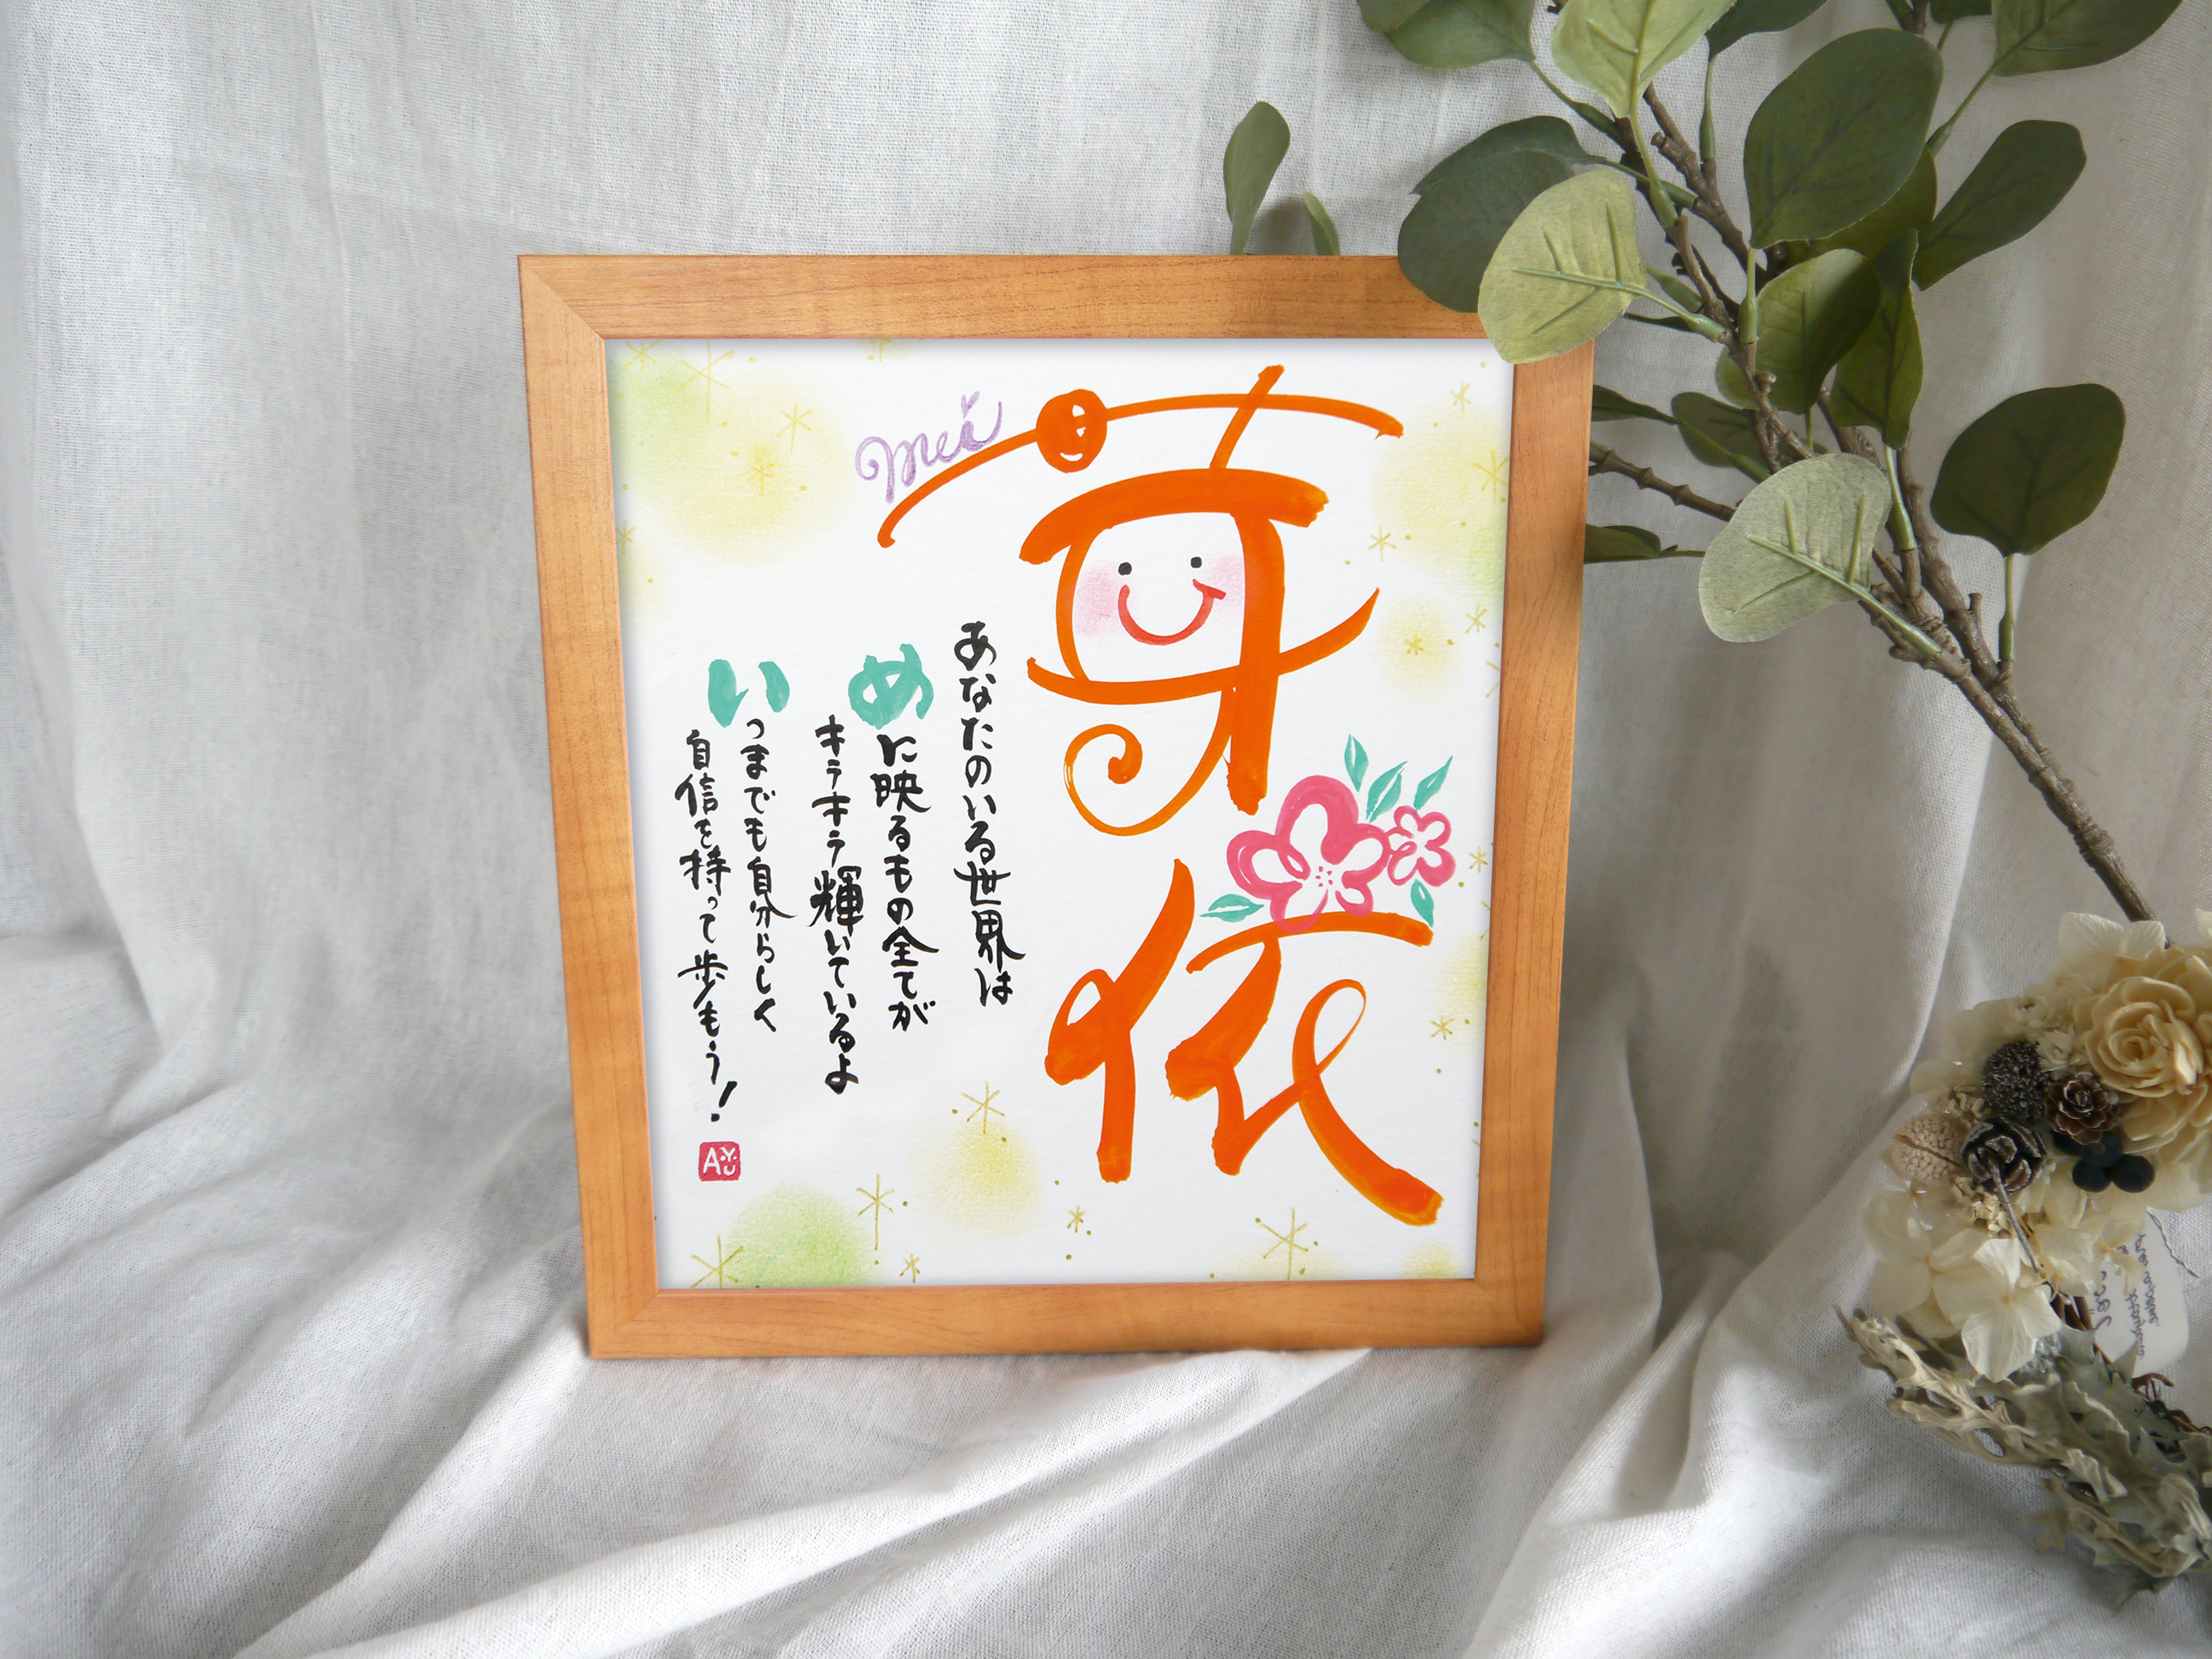 芽依
mei
あなたのいる世界は
めに映るもの全てが
キラキラ輝いているよ
いつまでも自分らしく
自信を持って歩もう!
AYU